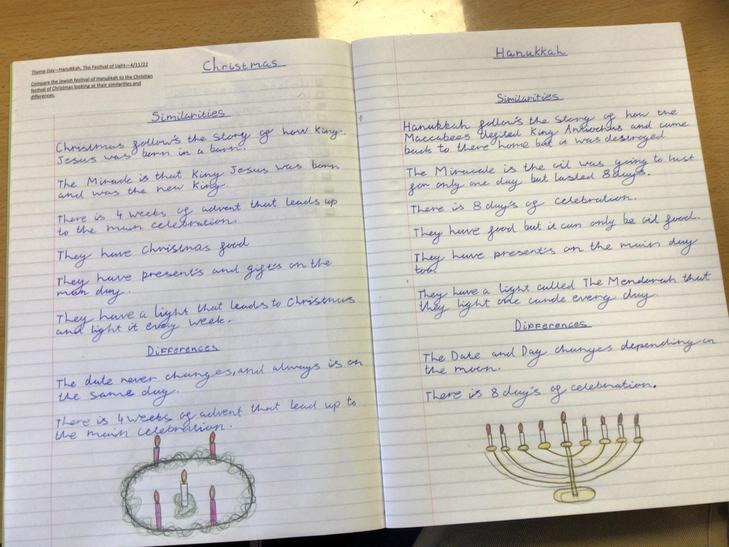 Theme Day—Hanukkah, The Festival of Light—4/11/22
Compare the Jewish festival of Hanukkah to the Christian
festival of Christmas looking at their similarities and
differences.
Christmas
Similarities
Christmas follow's the story of how King
Jesus was born in a barn.
The Miracle is that King Jesus was born
and was the new King.
There is 4 weeks of advent that leads up
to the main celebration.
They have Christmas food
They have present's and gifts on the
main day.
They have a light that leads to Christmas
and light it every week.
Differences
The date never changes, and always is on
the same day.
There is 4 weeks of advent that lead up to
the main celebration.
Hanukkah
Similarities
Hanukkah follow's the story of how the
Maccabees defited King Antiochus and came
back to there home but it was destroyed
The Miracale is the oil was going to last
for only one day but lasted 8 day's.
There is 8 day's of celebration.
They have food but it can only be oil food.
They have present's on the main day
too.
They have a light called The Mendarah that
they light one cande every day.
Differences
The Date and Day changes depending on
the moon.
There is 8 day's of celebration.